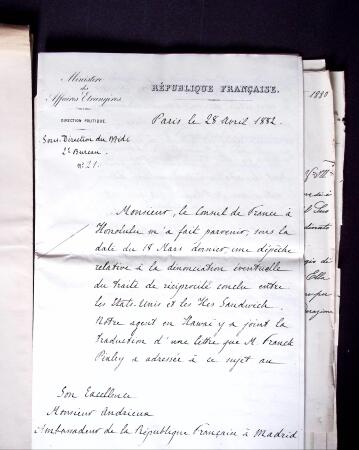 Ministère
des
Affaires Etrangères
RÉPUBLIQUE FRANÇAISE.
DIRECTION POLITIQUE.
Paris le 28 avril 1882.
Sous-Direction du Midi
2e Bureau
n° 21.
Monsieur, le Consul de France à
Honolulu m'a fait parvenir, sous la
date du 18 Mars dernier, une dépêche
relative à la dénonciation éventuelle
du traité de réciprocité conclu entre
les Etats-Unis et les Iles Sandwich.
Notre agent en Hawaï y a joint la
traduction d'une lettre que M. Franck
a adressée à ce sujet au
Son Excellence
Monsieur Andrieux
Ambassadeur de la République Française à Madrid
1880